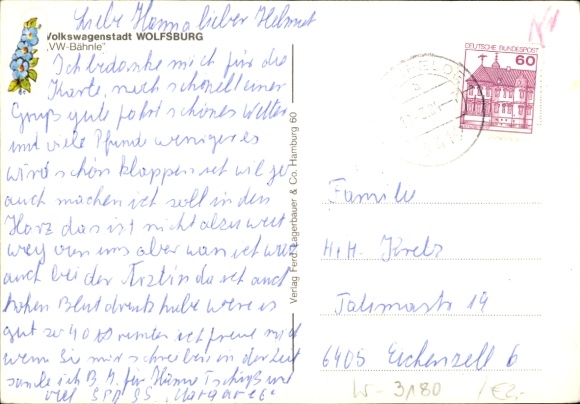 Liebe Hanna lieber Helmut
Volkswagenstadt WOLFSBURG
"VW-Bähnle"
Ich bedanke mich für die
Karte, noch schnell einer
Gruß gute fahrt schönes Wetter
und viele Pfunde weniger es
wird schon klappen
auch machen ich soll in den
Harz das ist nicht alzu weit
weg von uns aber wan ich
auch bei der Ärztin da ich auch
hohen Blutdruck habe were es
gut zu 40 ich freue mich
wenn Sie mir schreiben in der Zeit
sende ich B. M. für Hanna Tschüß
viel SPASS
Verlag Ferd. Lagerbauer & Co. Hamburg 60
DEUTSCHE BUNDESPOST
60
Familie
H+H. Krebs
6405 Eichenzell 6
W-3180
1E2,-